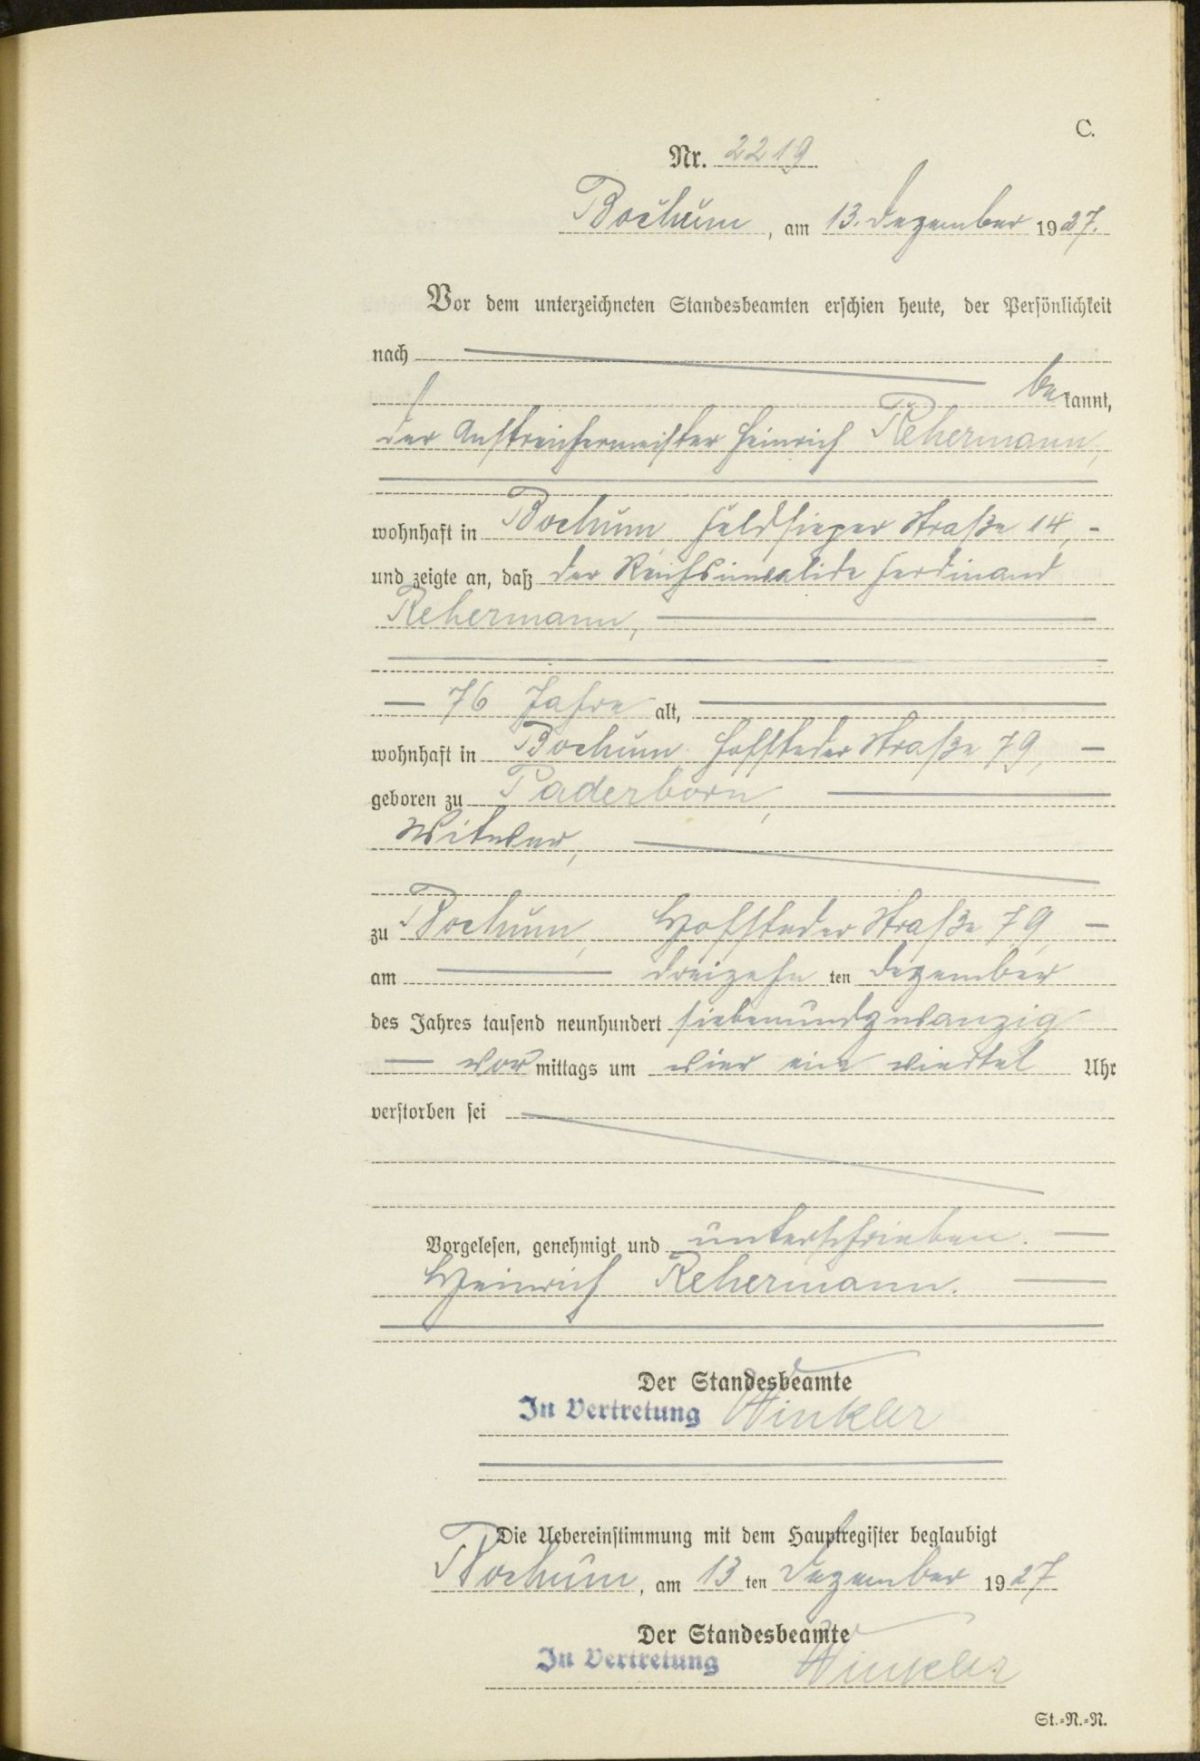 C.
Nr. 2219
Bochum, am 13. Dezember 1927.
Vor dem unterzeichneten Standesbeamten erschien heute, der Persönlichkeit
nach
bekannt,
der Anstreichermeister Heinrich Rehermann,
wohnhaft in Bochum Feldsieper Straße 14,
und zeigte an, daß der Reichsinvalide Ferdinand
Rehermann,
76 Jahre alt,
wohnhaft in Bochum Hofsteder Straße 79,
geboren zu Paderborn,
Witwer,
zu Bochum, Hofsteder Straße 79,
am dreizehn ten Dezember
des Jahres tausend neunhundert siebenundzwanzig
vormittags um vier ein viertel Uhr
verstorben sei
Vorgelesen, genehmigt und unterschrieben.
Heinrich Rehermann.
Der Standesbeamte
In Vertretung Winkler
Die Uebereinstimmung mit dem Hauptregister beglaubigt
Bochum, am 13 ten Dezember 1927
Der Standesbeamte
In Vertretung Winkler
St.-N.-N.